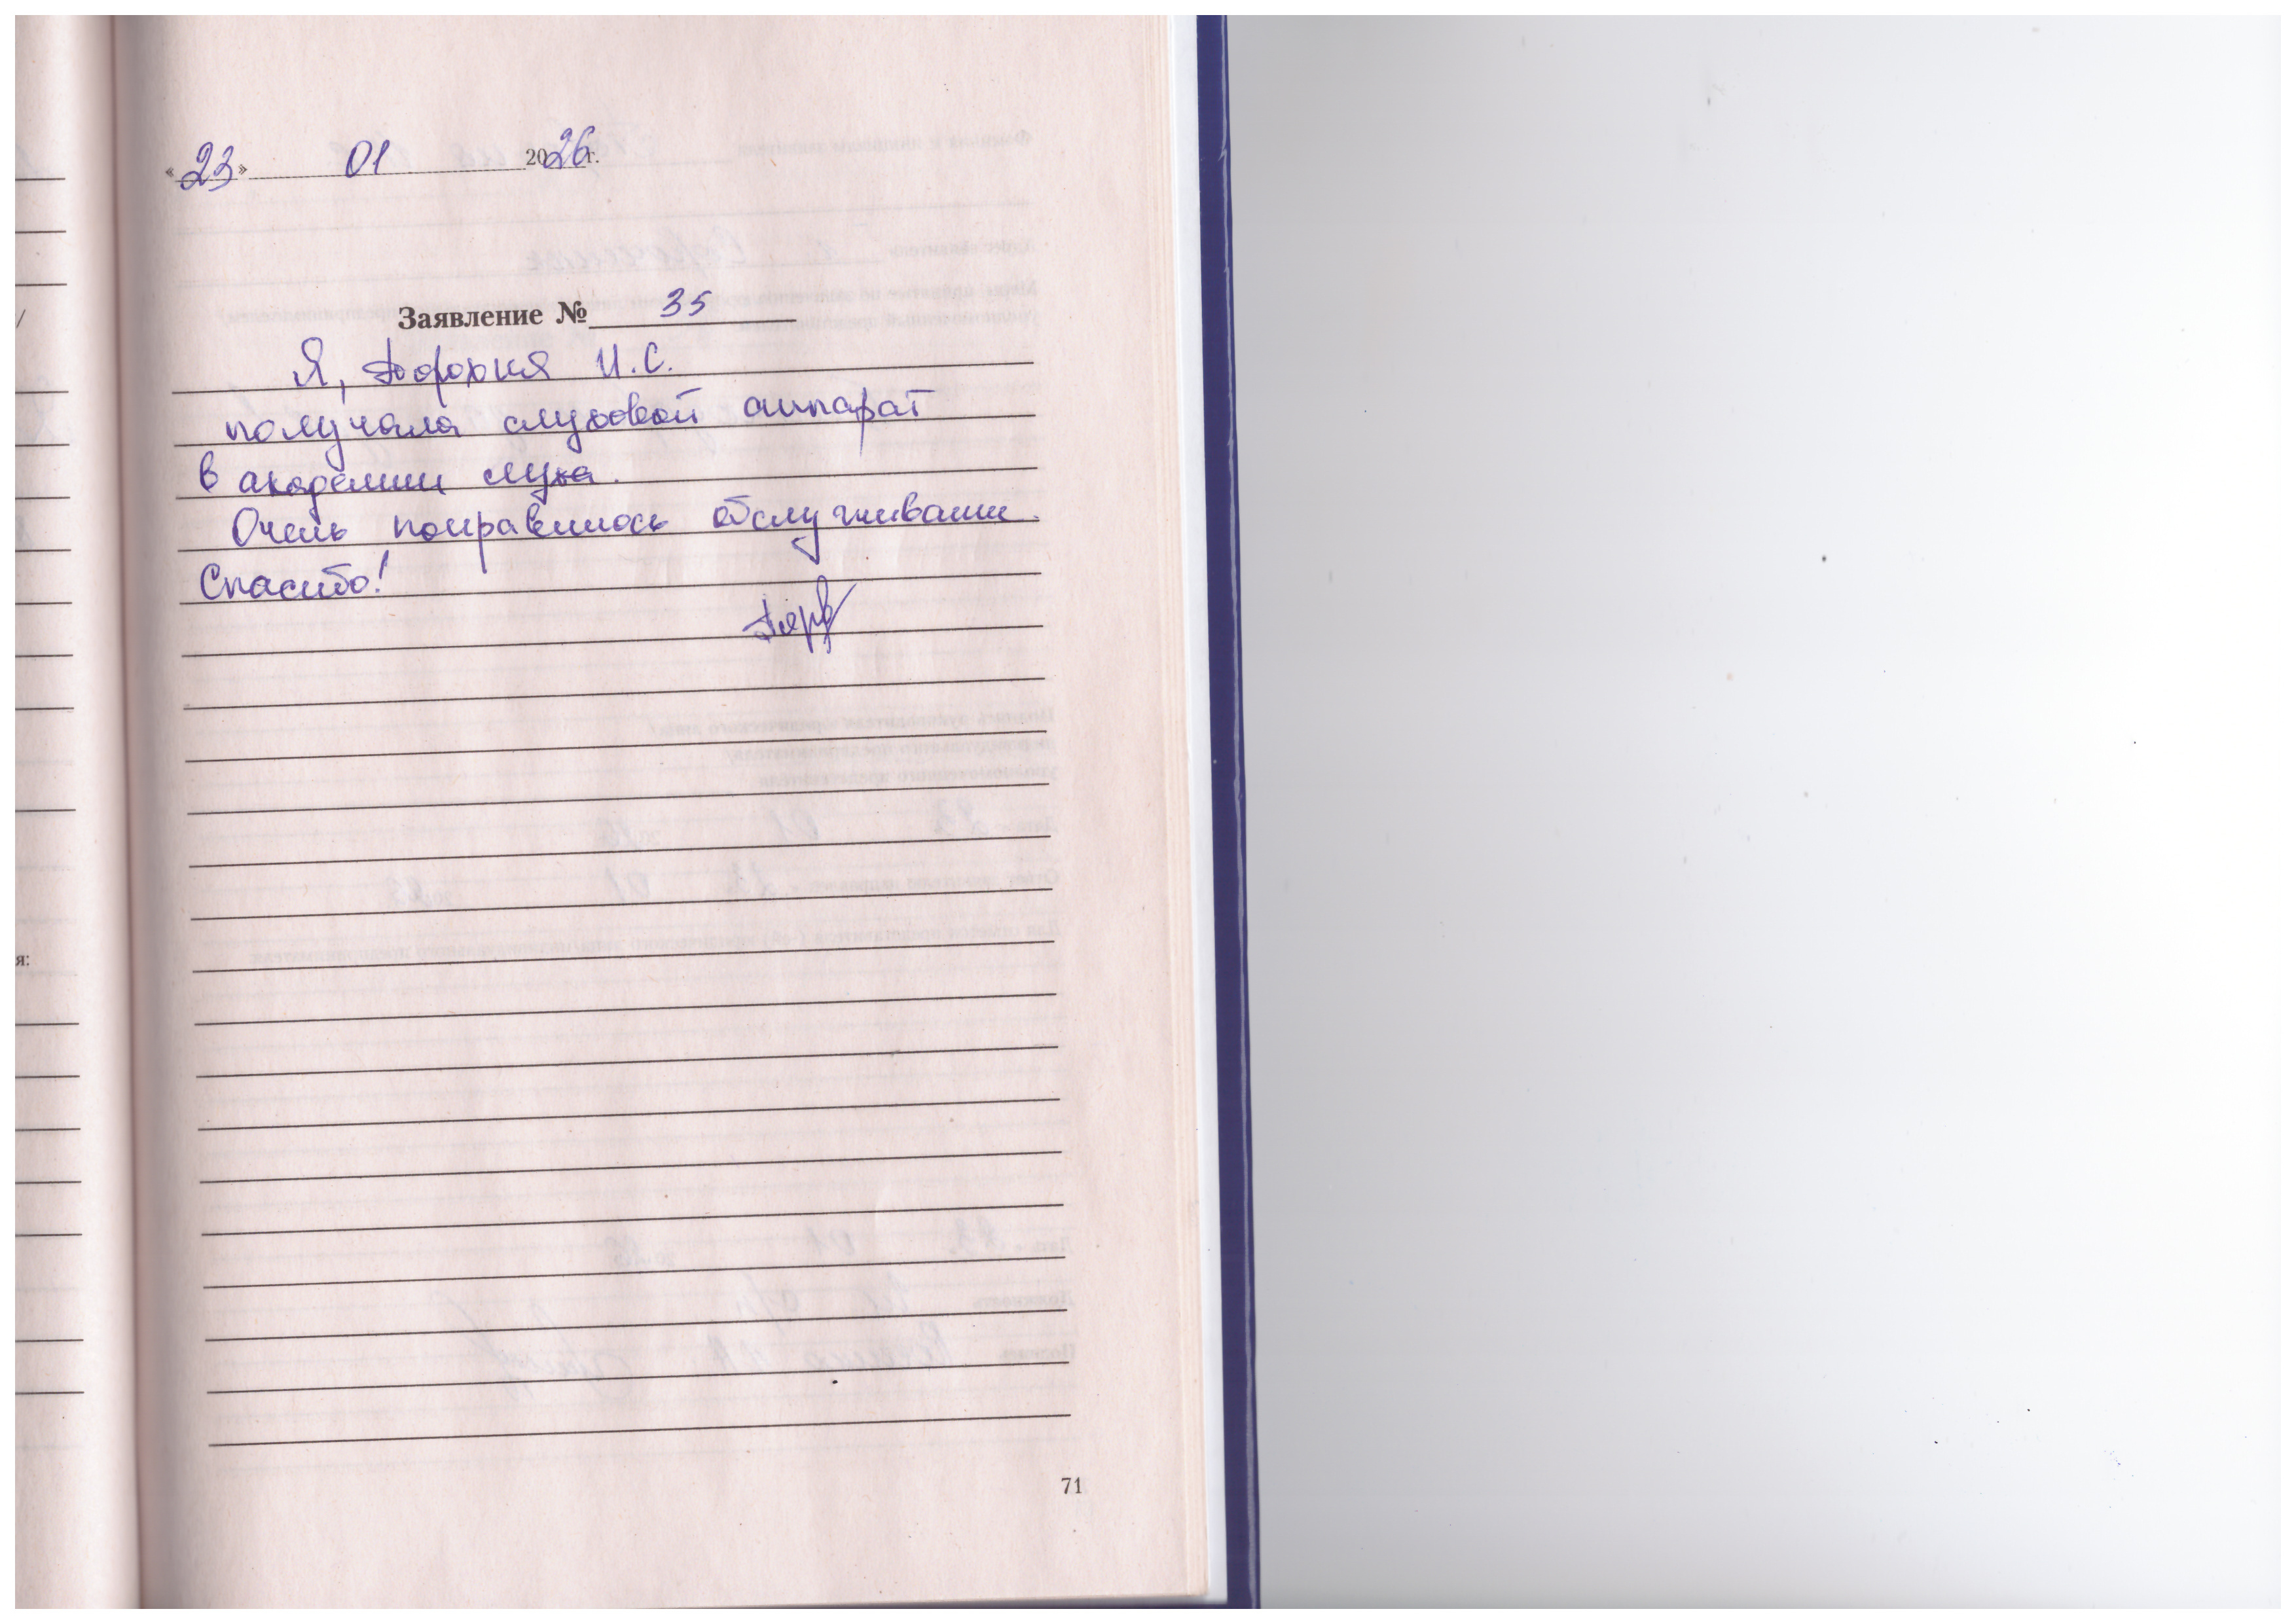 «23» 01 2026г.
Заявление № 35
Я, И.С.
получала слуховой аппарат
в академии слуха.
Очень понравилось обслуживание.
Спасибо!
я:
71